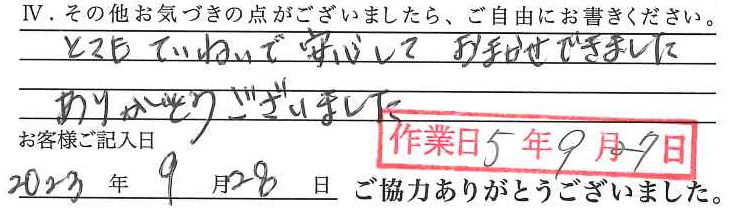 Ⅳ．その他お気づきの点がございましたら、ご自由にお書きください。
とてもていねいで安心しておまかせできました
ありがとうございました
お客様ご記入日
作業日5年9月27日
2023年9月28日
ご協力ありがとうございました。